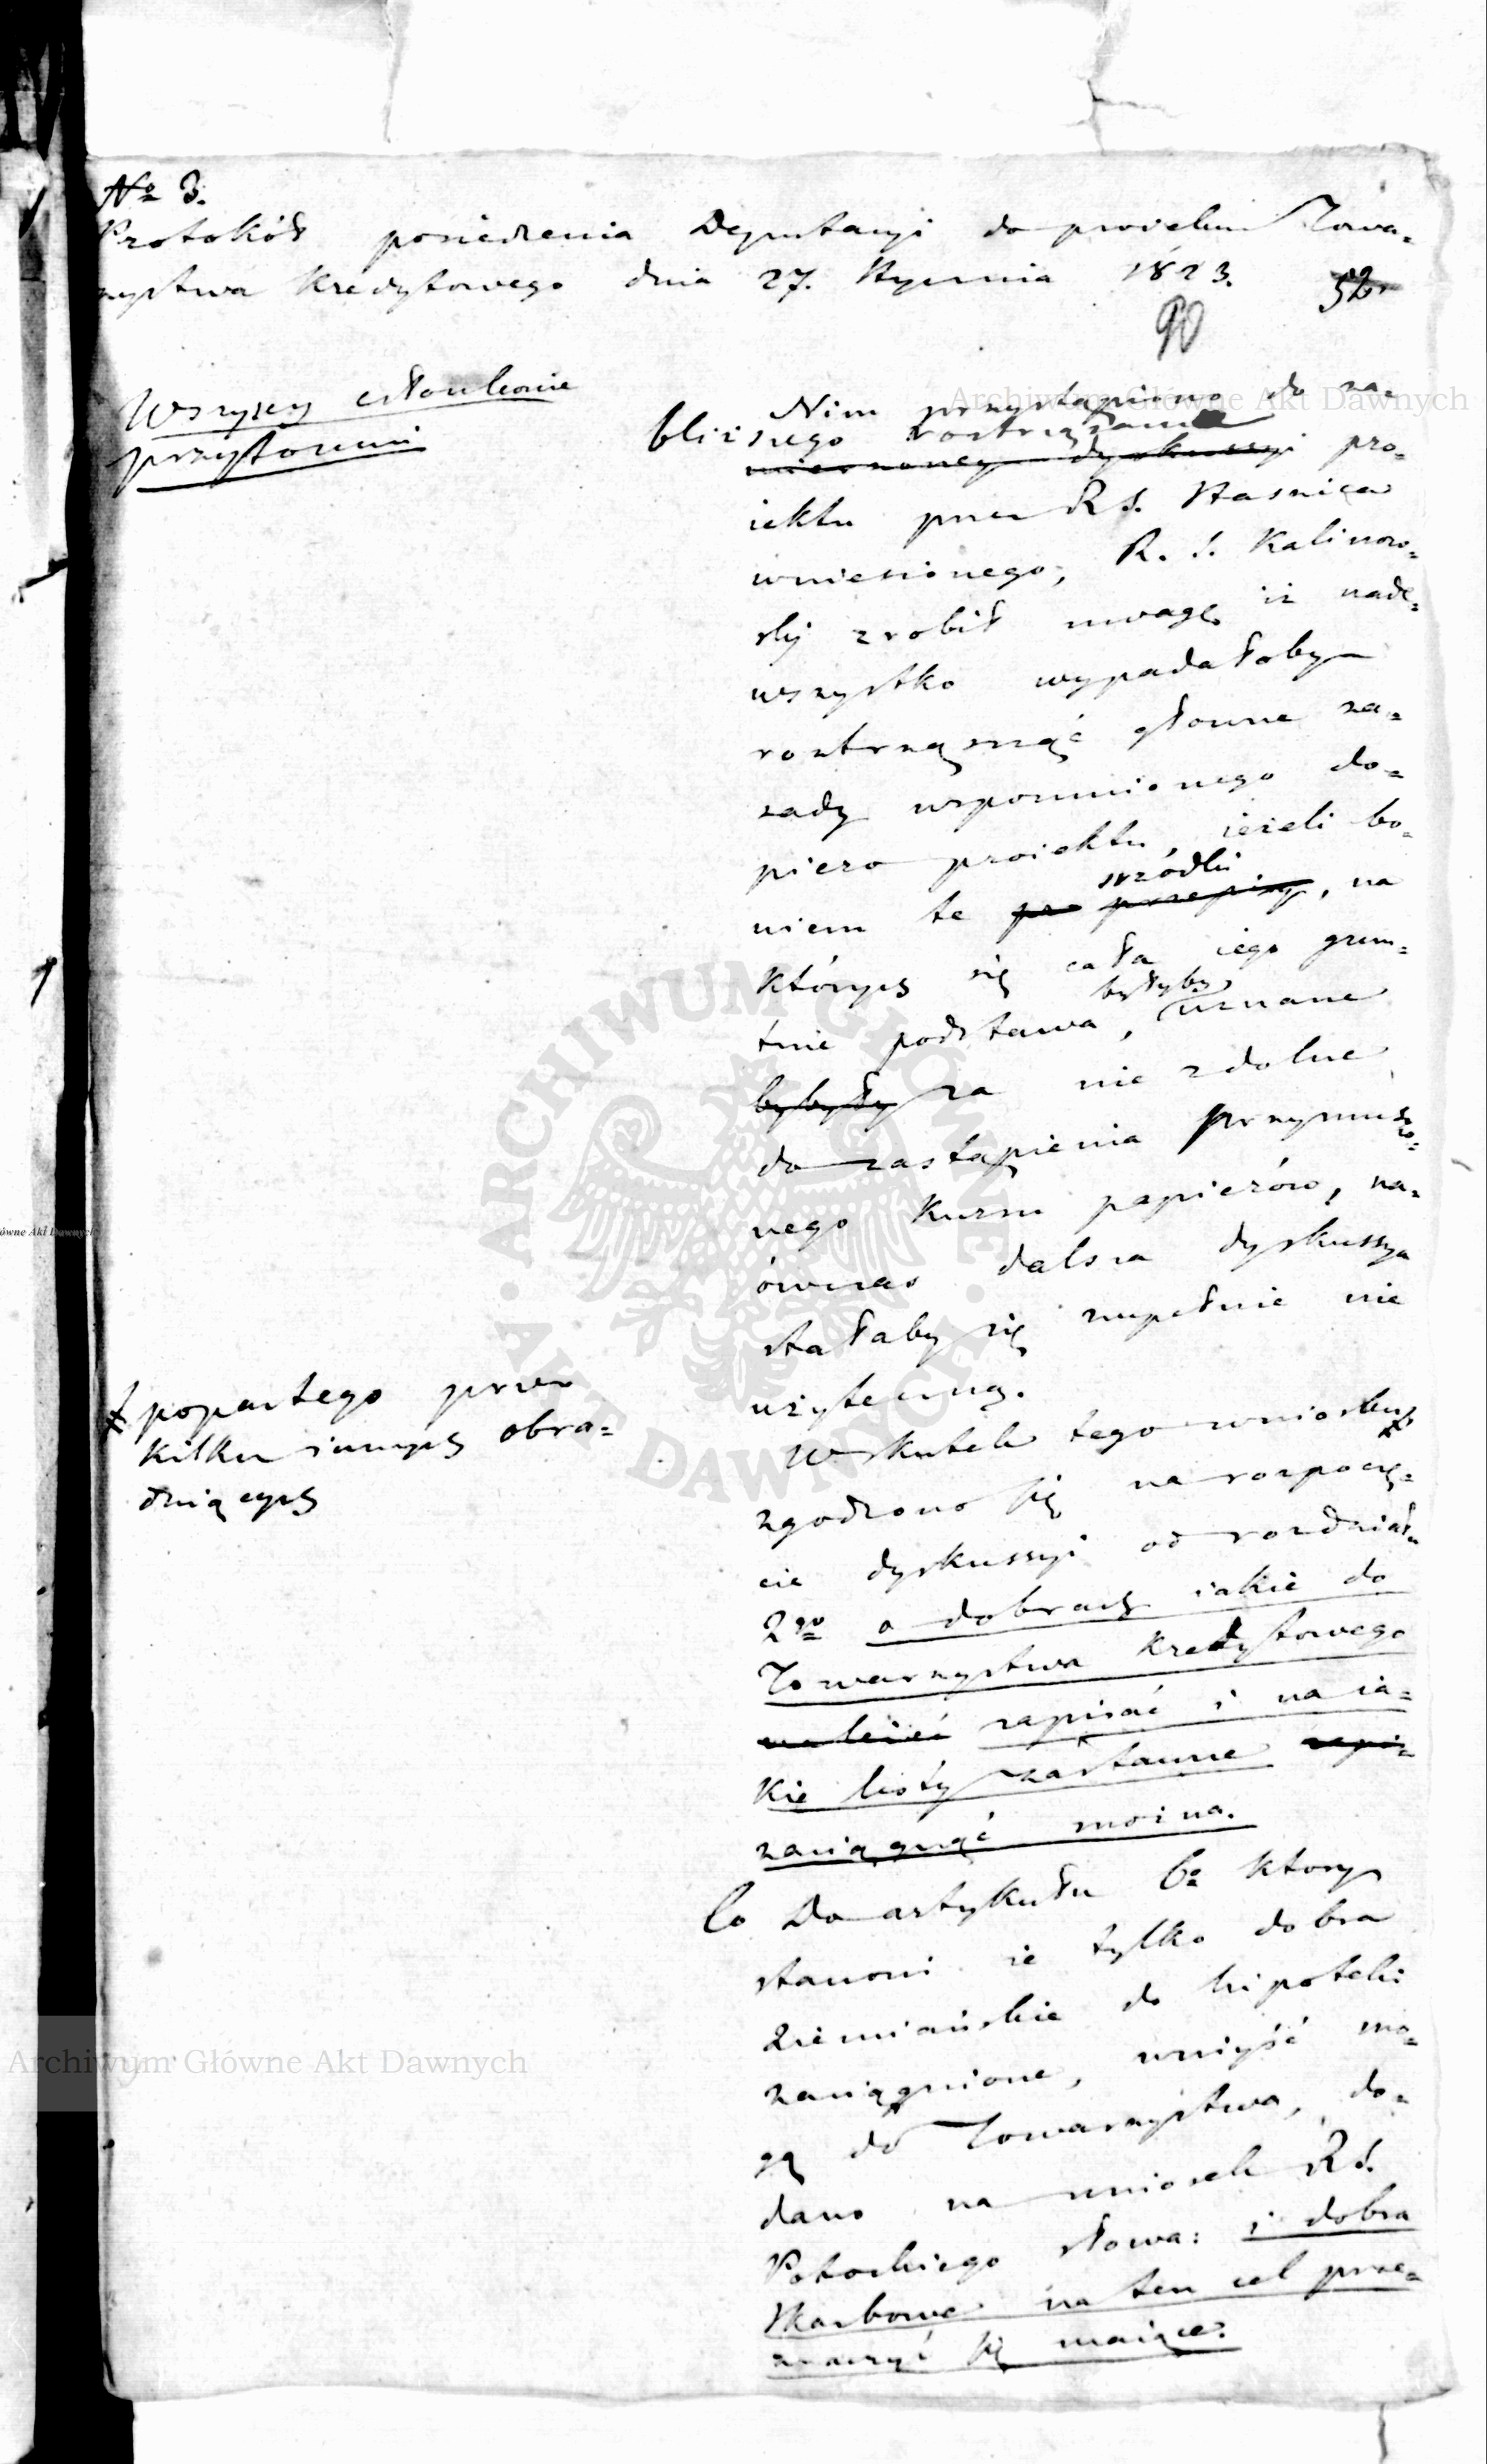 No 3.
Protokół posiedzenia Deputacyi do proiektu Towa=
rzystwa Kredytowego dnia 27. Stycznia 1823.
52
90
Wszyscy członkowie
przytomni
Nim przystąpiono do na=
bliższego roztrząsania
dyskussyi pro=
iektu przez R. S. Staszica
wniesionego, R. S. Kalinow=
ski zrobił uwagę iż nade=
wszystko wypadałoby
roztrząsnąć głowne za=
sady wspomnionego do=
piero proiektu, ieżeli bo=
wiem te szródki
przepisy, na
których się cała iego grun=
tuie podstawa, byłyby uznane
byłyby za nie zdolne
do zastąpienia przymuszo=
nego kursu papierów, na=
ówczas dalsza dyskussya
stałaby się zupełnie nie
użyteczną.
W skutek tego wniosku
popartego przez
kilku innych obra=
duiących
zgodzono się na rozpoczę=
cie dyskussyi od rozdziału
2go o dobrach iakie do
Towarzystwa Kredytowego
należeć zapisać i na ia=
kie listy zastawne
zaciągnąć można.
Co Do artykułu 6o ktory
stanowi że tylko dobra
ziemiańskie do hipoteki
zaciągnione, wniyść mo=
gą do Towarzystwa, do=
dano na wniosek R. S.
Potockiego słowa: i dobra
Skarbowe na ten cel prze=
znaczyć się maiące.
Archiwum Główne Akt Dawnych
ARCHIWUM GŁÓWNE · AKT DAWNYCH ·
Archiwum Główne Akt Dawnych